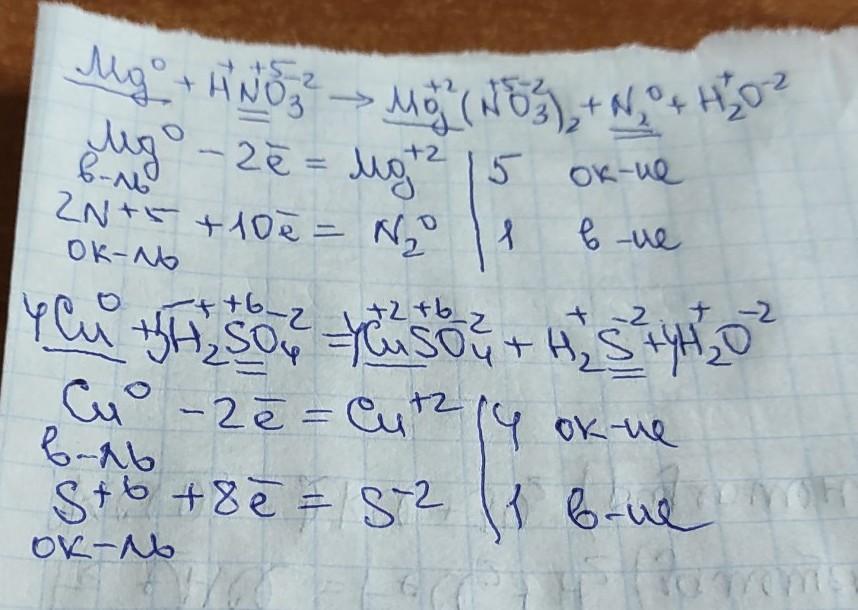 Mg⁰ + H⁺N⁺⁵O₃⁻² → Mg⁺²(N⁺⁵O₃⁻²)₂ + N₂⁰ + H₂⁺O⁻²
Mg⁰ - 2ē = Mg⁺² | 5 ок-ие
в-ль
2N+5 + 10ē = N₂⁰ | 1 в-ие
ок-ль
4Cu⁰ + 5H₂⁺S⁺⁶O₄⁻² = 4Cu⁺²S⁺⁶O₄⁻² + H₂⁺S⁻² + 4H₂⁺O⁻²
Cu⁰ - 2ē = Cu⁺² | 4 ок-ие
в-ль
S+6 + 8ē = S⁻² | 1 в-ие
ок-ль